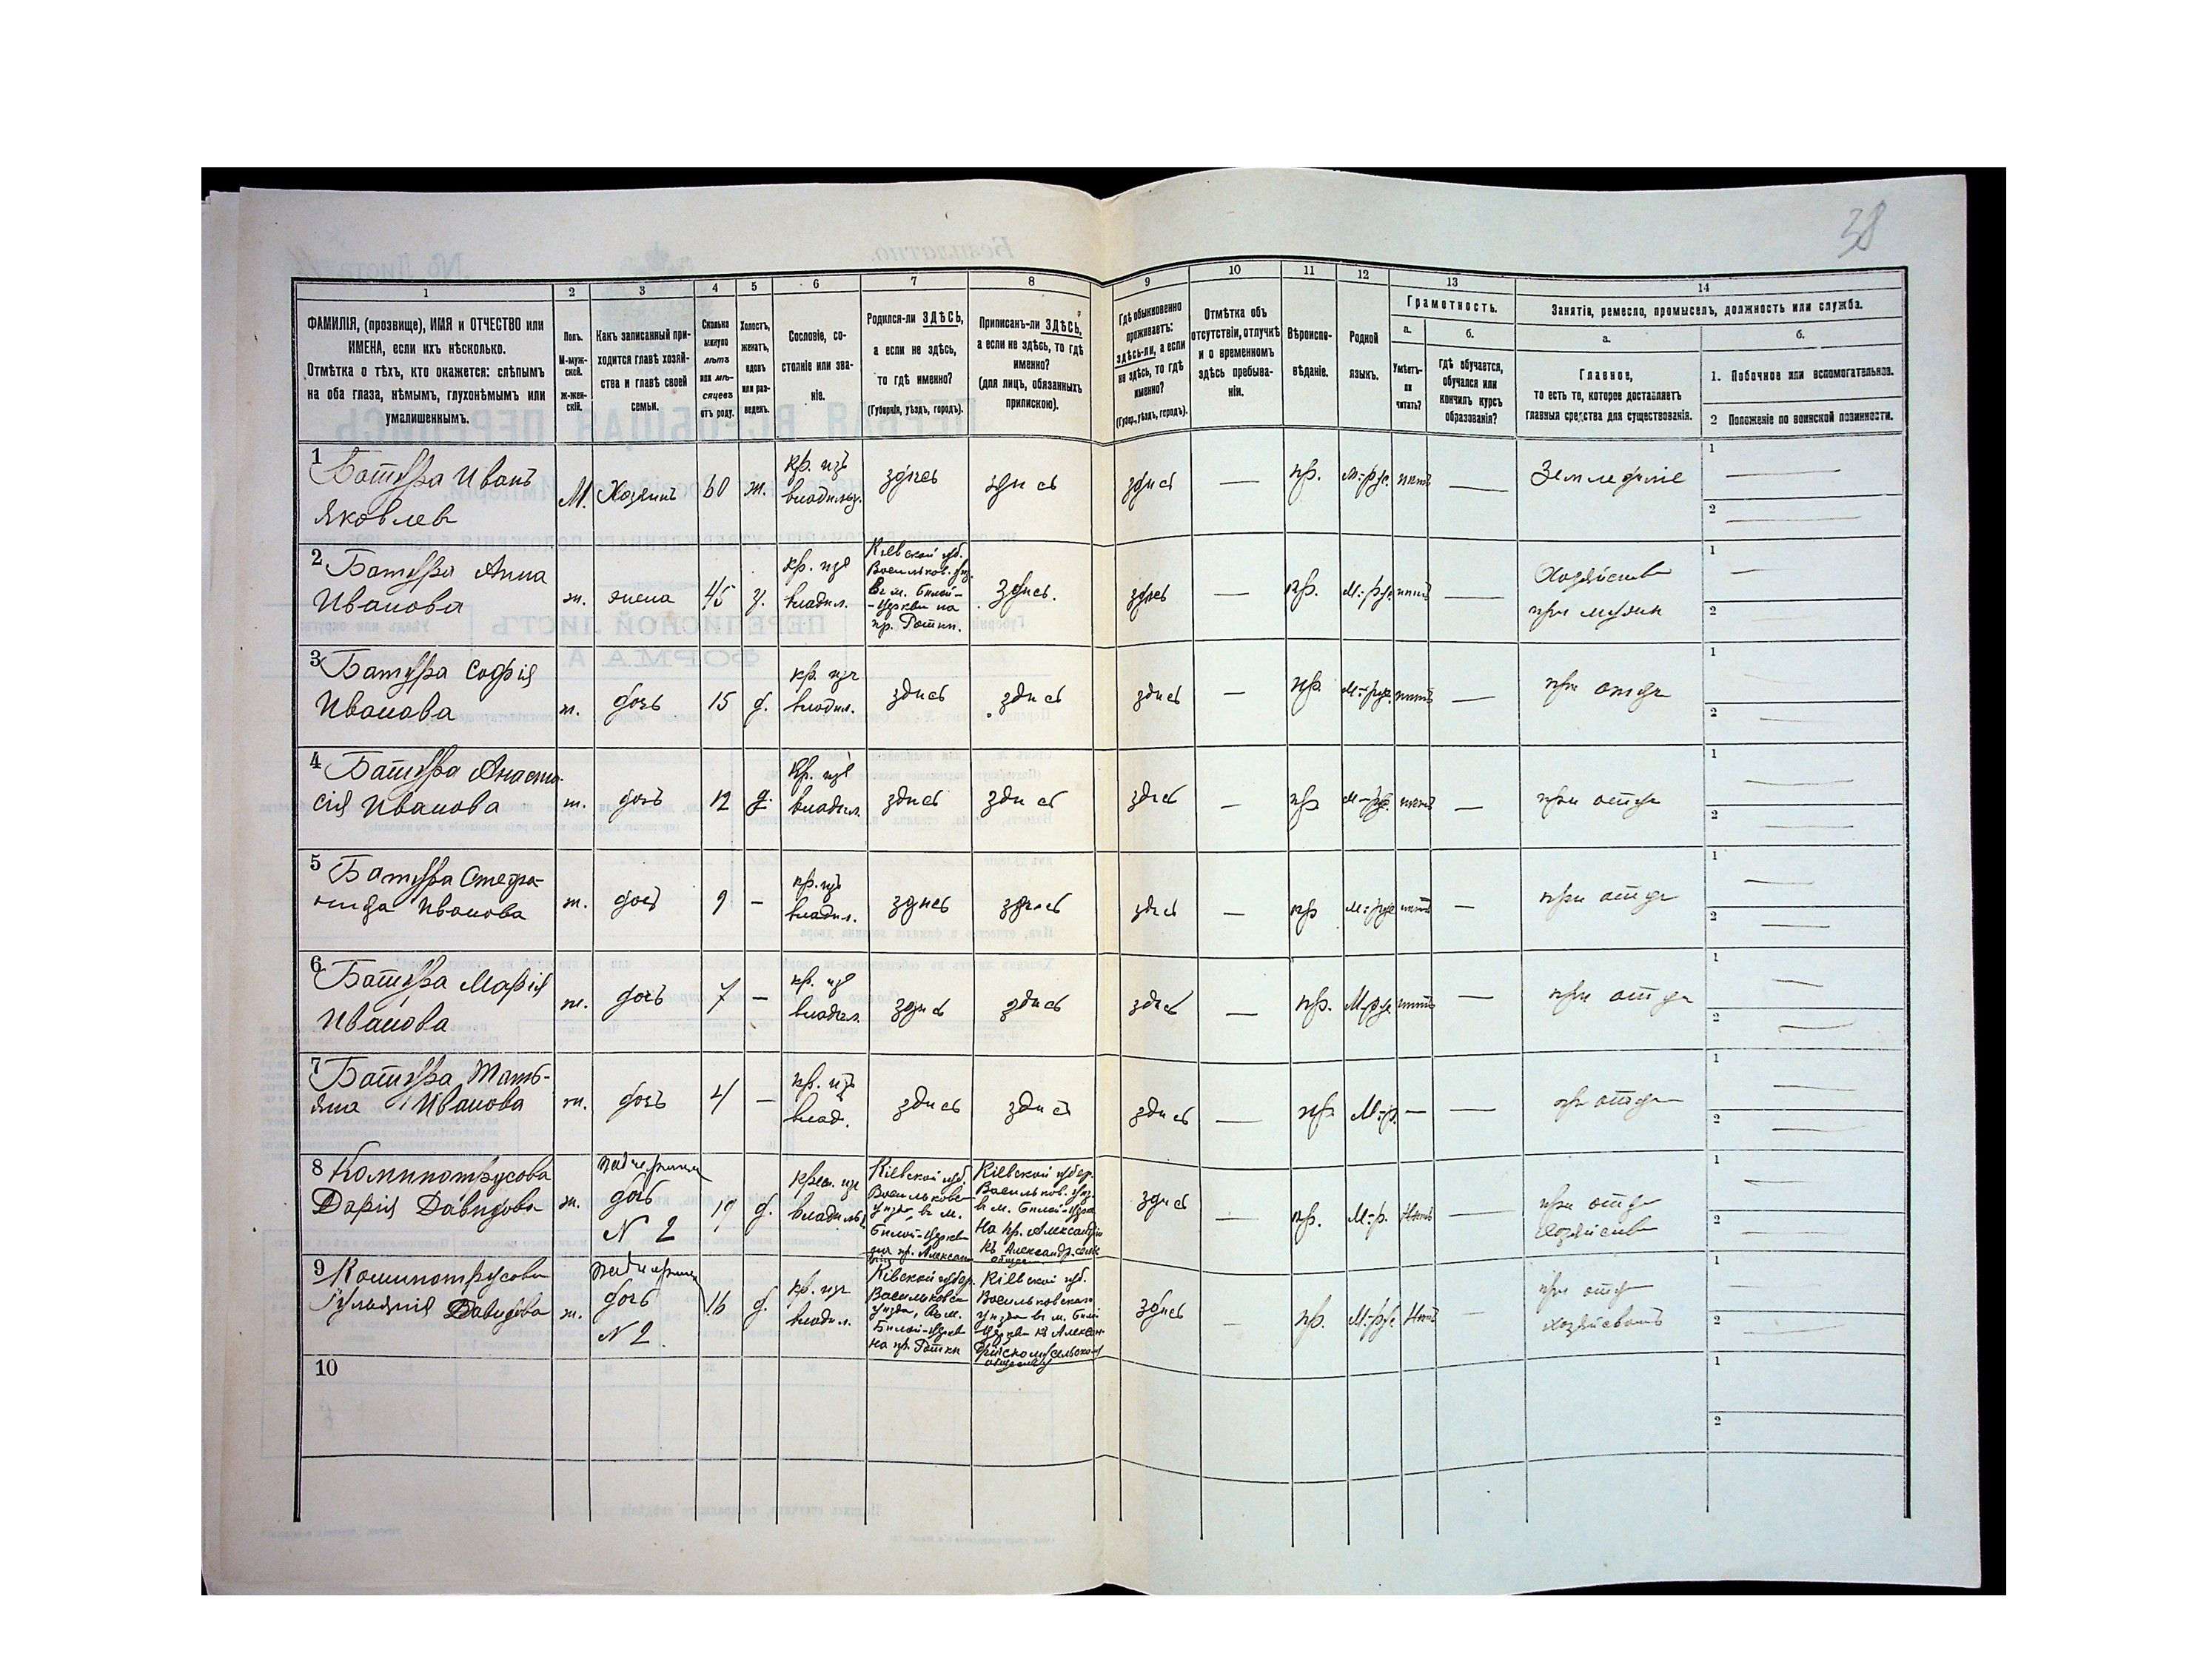 38
1 2 3 4 5 6 7 8 9 10 11 12 13 14
ФАМИЛІЯ, (прозвище), ИМЯ и ОТЧЕСТВО или
ИМЕНА, если ихъ нѣсколько.
Отмѣтка о тѣхъ, кто окажется: слѣпымъ
на оба глаза, нѣмымъ, глухонѣмымъ или
умалишеннымъ.
Полъ.
М-муж-
ской.
Ж-жен-
скій.
Какъ записанный при-
ходится главѣ хозяй-
ства и главѣ своей
семьи.
Сколько
минуло
лѣтъ
или мѣ-
сяцевъ
отъ роду.
Холостъ,
женатъ,
вдовъ
или раз-
веденъ.
Сословіе, со-
стояніе или зва-
ніе.
Родился-ли ЗДѢСЬ,
а если не здѣсь,
то гдѣ именно?
(Губернія, уѣздъ, городъ).
Приписанъ-ли ЗДѢСЬ,
а если не здѣсь, то гдѣ
именно?
(для лицъ, обязанныхъ
припискою).
Гдѣ обыкновенно
проживаетъ:
здѣсь-ли, а если
не здѣсь, то гдѣ
именно?
(Губер., уѣздъ, городъ).
Отмѣтка объ
отсутствіи, отлучкѣ
и о временномъ
здѣсь пребыва-
ніи.
Вѣроиспо-
вѣданіе.
Родной
языкъ.
Грамотность.
а. б.
Умѣетъ-
ли
читать?
Гдѣ обучается,
обучался или
кончилъ курсъ
образованія?
Занятіе, ремесло, промыселъ, должность или служба.
а. б.
Главное,
то есть то, которое доставляетъ
главныя средства для существованія.
1. Побочное или вспомогательное.
2 Положеніе по воинской повинности.
1 Батура Иванъ
Яковлев
М. Хозяинъ 60 ж. кр. изъ владѣльч. здѣсь здѣсь здѣсь — пр. М.-рус. нѣтъ — Земледѣліе
2 Батура Анна
Иванова
ж. жена 45 з. кр. изъ владѣл.
Кіевской губ.
Васильков. уѣз.
въ м. Бѣлой-
-Церкви на
пр. Роткн.
здѣсь. здѣсь — пр. М.-рус. нѣтъ —
Хозяйство
при мужѣ
3 Батура Софія
Иванова
ж. дочь 15 д. кр. изъ владѣл. здѣсь здѣсь здѣсь — пр. М.-рус. нѣтъ — при отцѣ
4 Батура Анаста-
сія Иванова
ж. дочь 12 д. кр. изъ владѣл. здѣсь здѣсь здѣсь — пр М-рус. нѣтъ — при отцѣ
5 Батура Стефа-
нида Иванова
ж. дочь 9 — кр. изъ владѣл. здѣсь здѣсь здѣсь — пр М.-рус нѣтъ — при отцѣ
6 Батура Марія
Иванова
ж. дочь 7 — кр. изъ владѣл. здѣсь здѣсь здѣсь — пр. М-рус нѣтъ — при отцѣ
7 Батура Тать-
яна Иванова
ж. дочь 4 — кр. изъ влад. здѣсь здѣсь здѣсь — пр М-р. — — при отцѣ
8 Коминотрусова
Дарія Давидова
ж. дочь N 2 19 д. крест. изъ владѣльч.
Кіевской губ.
Васильковс-
уѣзда, въ м.
Бѣлой-Церкви
Кіевской губер.
Васильков. уѣз.
въ м. Бѣлой-Церк
На пр. Александріи
къ Александр. сельс
общес
здѣсь — пр. М.-р. Нѣтъ
при отцѣ
хозяйство
9 Коминотрусова
Давидова
ж. дочь N 2. 16 д. кр. изъ владѣл.
Кіевской губер.
Васильковск
уѣзда, въ м.
Бѣлой-Церкв
на пр. Роткн
Кіевской губ.
Васильковскаго
уѣзда въ м. Бѣлой
-Церкви къ Алексан-
дрійскому сельскому
обществу
здѣсь — пр. М.-рус. Нѣтъ —
при отцѣ
хозяйствомъ
10